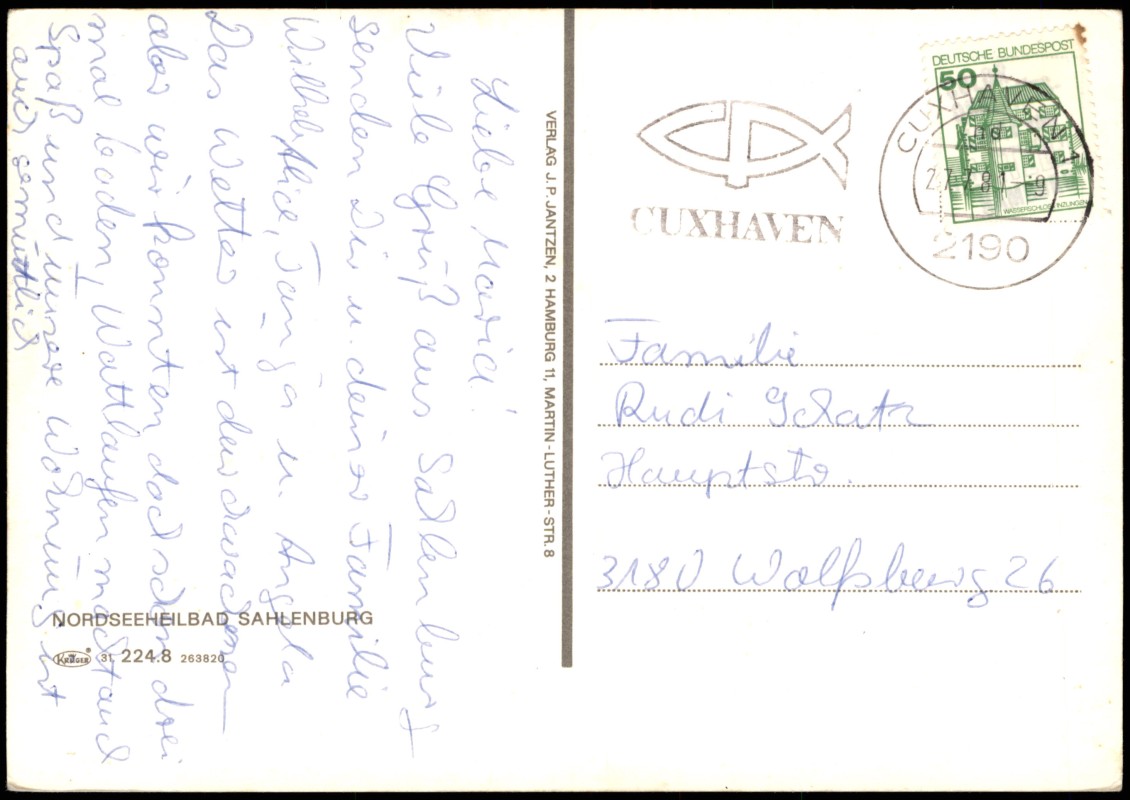 Liebe Maria!
Viele Grüß aus Sahlenburg
senden Dir u. deiner Familie
Wilhelm, Alice, Tanja u. Angela
Das Wetter ist durchwachsen
aber wir konnten doch schon drei
mal baden, Wattlaufen macht auch
Spaß und unsere Wohnung ist
auch gemütlich
NORDSEEHEILBAD SAHLENBURG
KRÜGER 31 224.8 263820
VERLAG J. P. JANTZEN, 2 HAMBURG 11, MARTIN-LUTHER-STR. 8
CUXHAVEN
DEUTSCHE BUNDESPOST
50
WASSERSCHLOSS INZLINGEN
CUXHAVEN 1
27.7.81
2190
Familie
Rudi Schatz
Hauptstr.
3180 Wolfsburg 26